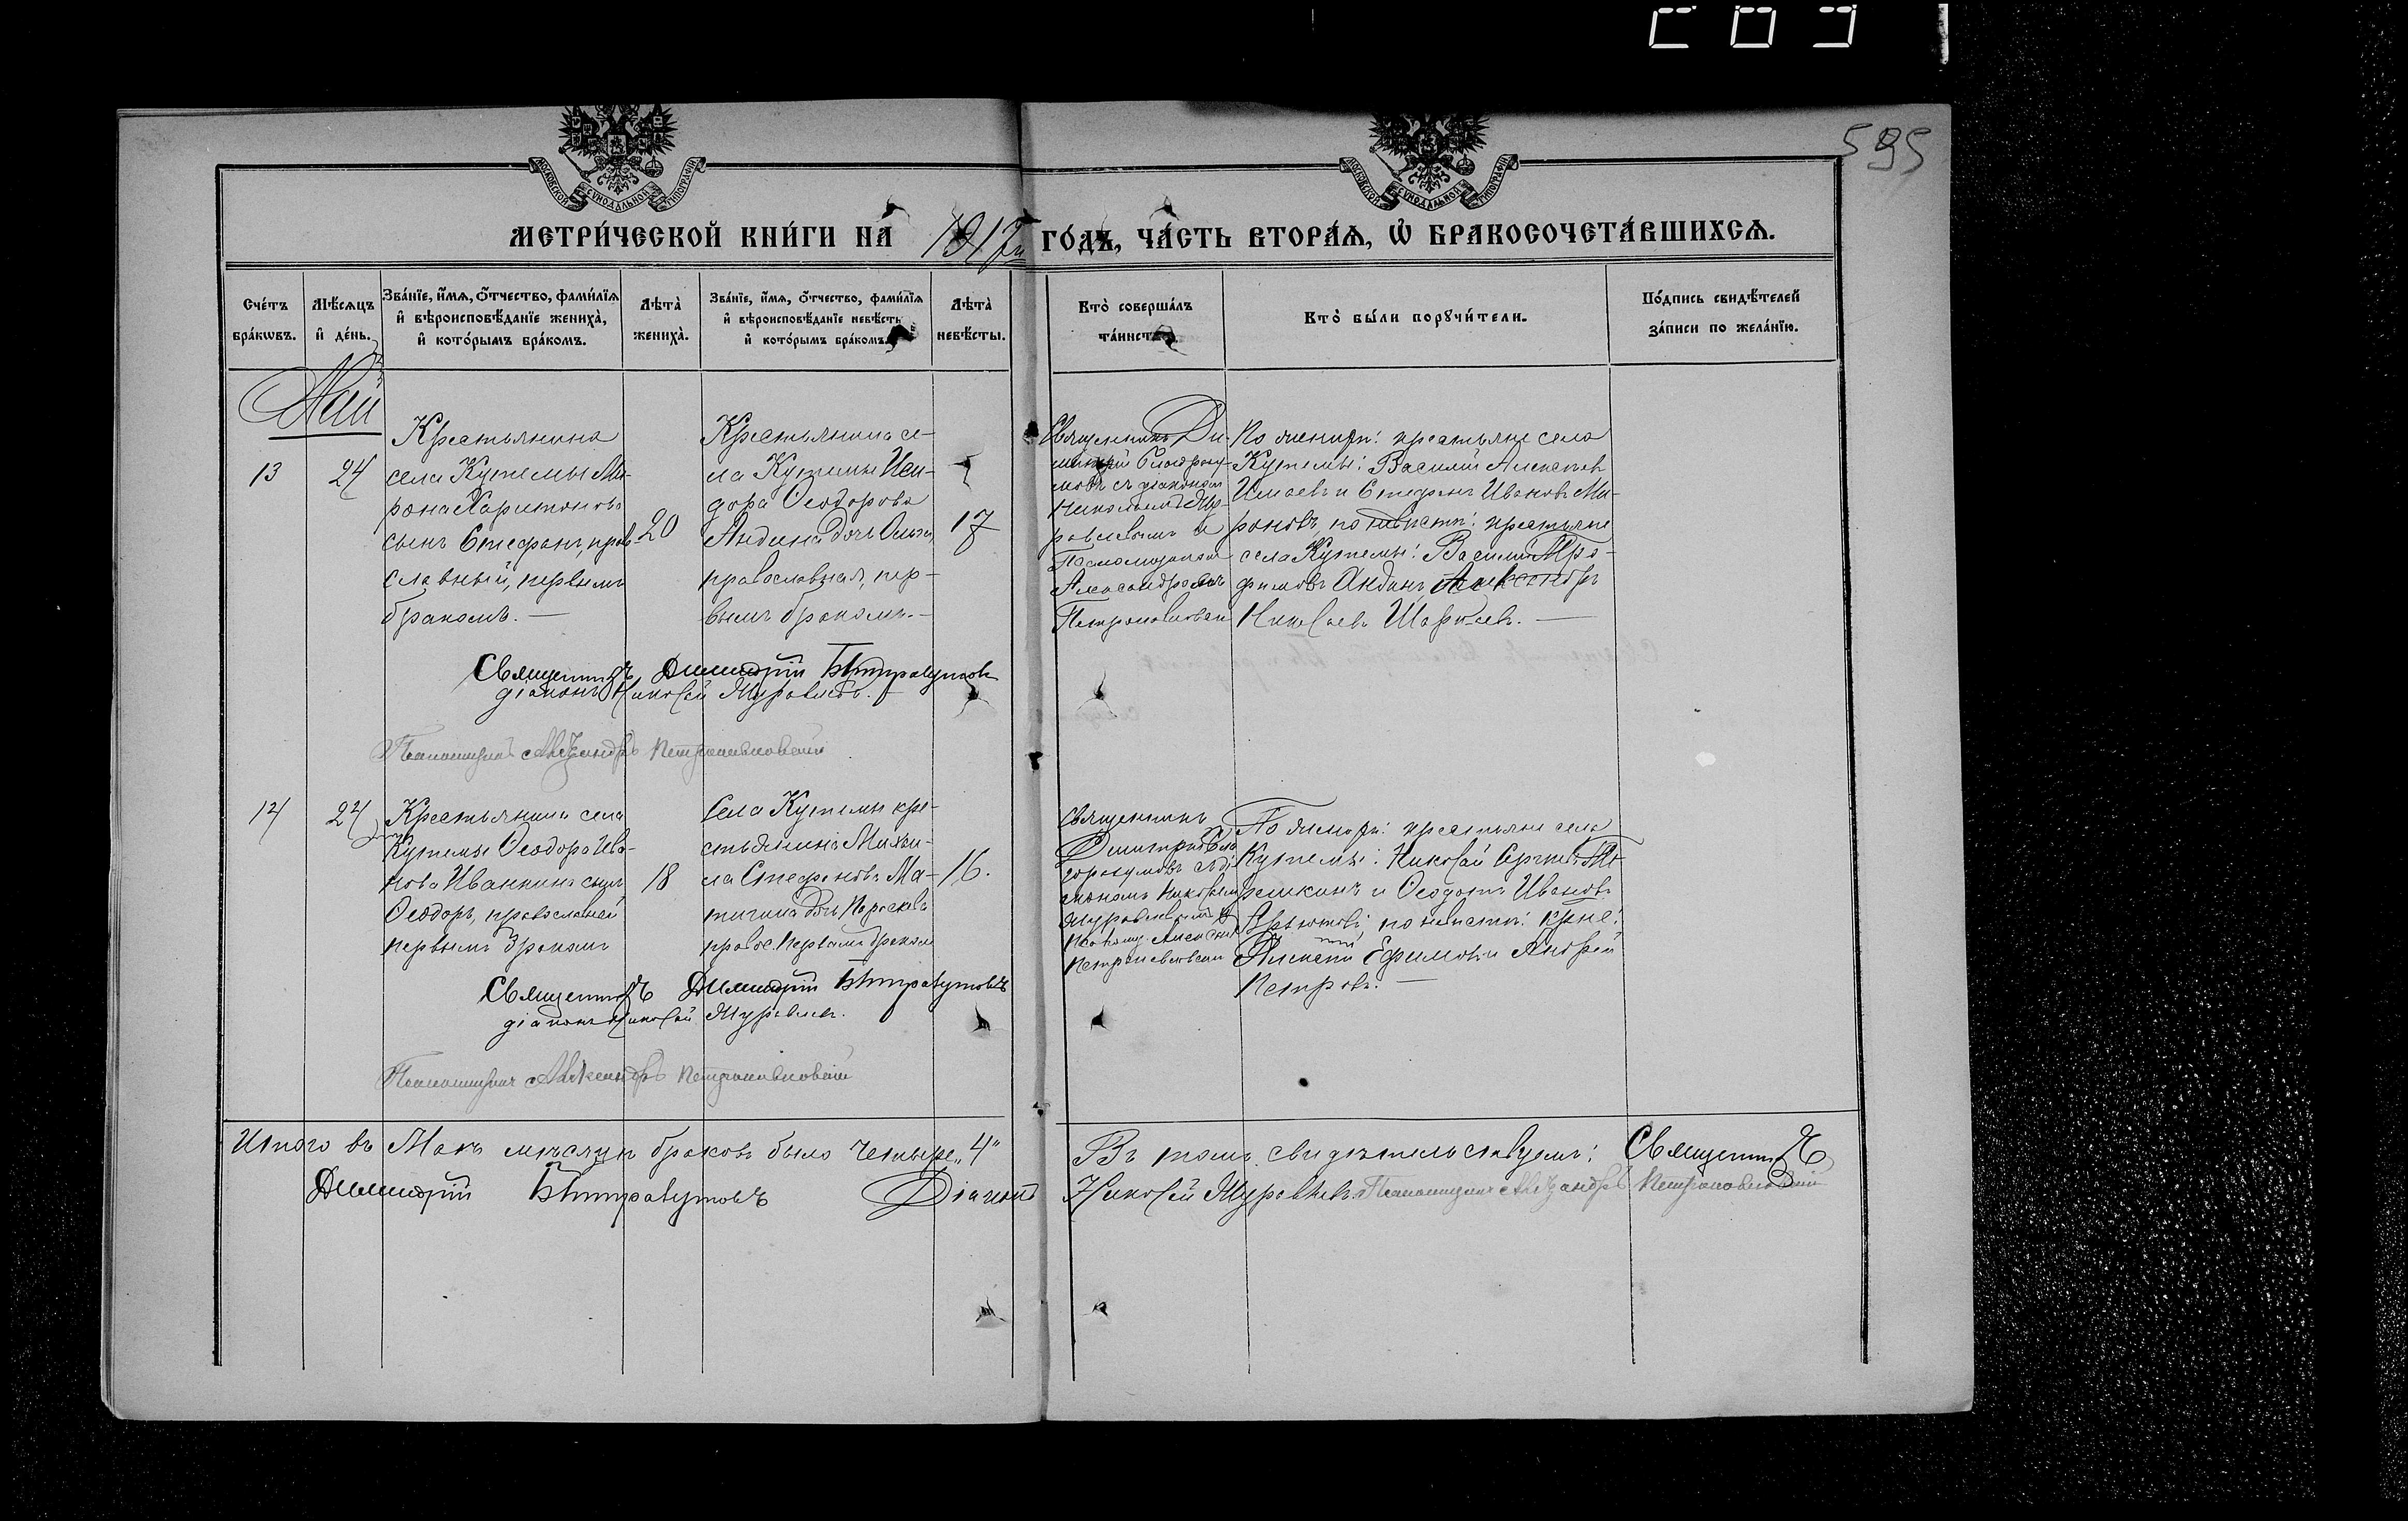 595
МОСКОВСКОЙ СУНОДАЛЬНОЙ ТИПОГРАФИИ
МОСКОВСКОЙ СУНОДАЛЬНОЙ ТИПОГРАФИИ
МЕТРИ́ЧЕСКОЙ КНИ́ГИ НА 1917й ГО́ДЪ, ЧА́СТЬ ВТОРА́Ѧ, Ѡ БРАКОСОЧЕТА́ВШИХСѦ.
Сче́тъ бра́кѡвъ.
Мѣ́сѧцъ и҆ де́нь.
Зва́нїе, и҆́мѧ, ѻ҆́тчество, фами́лїѧ и҆ вѣроисповѣ́данїе жениха̀, и҆ кото́рымъ бра́комъ.
Лѣта̀ жениха̀.
Зва́нїе, и҆́мѧ, ѻ҆́тчество, фами́лїѧ и҆ вѣроисповѣ́данїе невѣ́сты и҆ кото́рымъ бра́комъ.
Лѣта̀ невѣ́сты.
Кто̀ соверша́лъ та́инство.
Кто̀ бы́ли порꙋчи́тели.
По́дпись свидѣ́телей за́писи по жела́нїю.
Май
13
24
Крестьянина
села Кутемы Ми-
рона Харитонова
сынъ Стефанъ, право-
славный, первымъ
бракомъ. —
20
Крестьянина се-
ла Кутемы Иси-
дора Ѳеодорова
Андина дочь Ольга,
православная, пер-
вымъ бракомъ. —
17
Священникъ Ди-
митрій Благоразу-
мовъ съ діакономъ
Николаемъ Мур-
равлевымъ и
Псаломщикомъ
Александромъ
Петропавловски
По женихѣ: крестьяне села
Кутемы: Василій Алексѣевъ
и Стефанъ Ивановъ Ми-
роновъ, по невѣстѣ: крестьяне
села Кутемы: Василій Тро-
фимовъ Андинъ Александръ
Николаевъ —
Священникъ Димитрій Благоразумовъ
діаконъ Николай Муравлевъ.
Псаломщикъ Александръ Петропавловскій
14
24
Крестьянина села
Кутемы Ѳеодора Ива-
нова Иванкина сынъ
Ѳеодоръ, православный
первымъ бракомъ
18
Села Кутемы кре-
стьянина Михаи-
ла Стефанова Ма-
тигина дочь Параскева
правос. первымъ бракомъ
16.
Священникъ
Димитрій Бла
горазумовъ съ ді
акономъ Николаем
Муравлевымъ и
Псаломщ. Александ
Петропавловским
По женихѣ: крестьяне села
Кутемы: Николай Сергѣевъ
и Ѳеодотъ Ивановъ
по невѣстѣ: кр-не:
Алексѣй Ефимовъ и Андрей
Петровъ. —
Священникъ Димитрій Благоразумовъ
діаконъ Николай Муравлевъ.
Псаломщикъ Александръ Петропавловскій
Итого въ Маѣ мѣсяцѣ браковъ было четыре „4“ Въ томъ свидѣтельствуемъ: Священникъ
Димитрій Благоразумовъ Діаконъ Николай Муравлевъ Псаломщикъ Александръ Петропавловскій